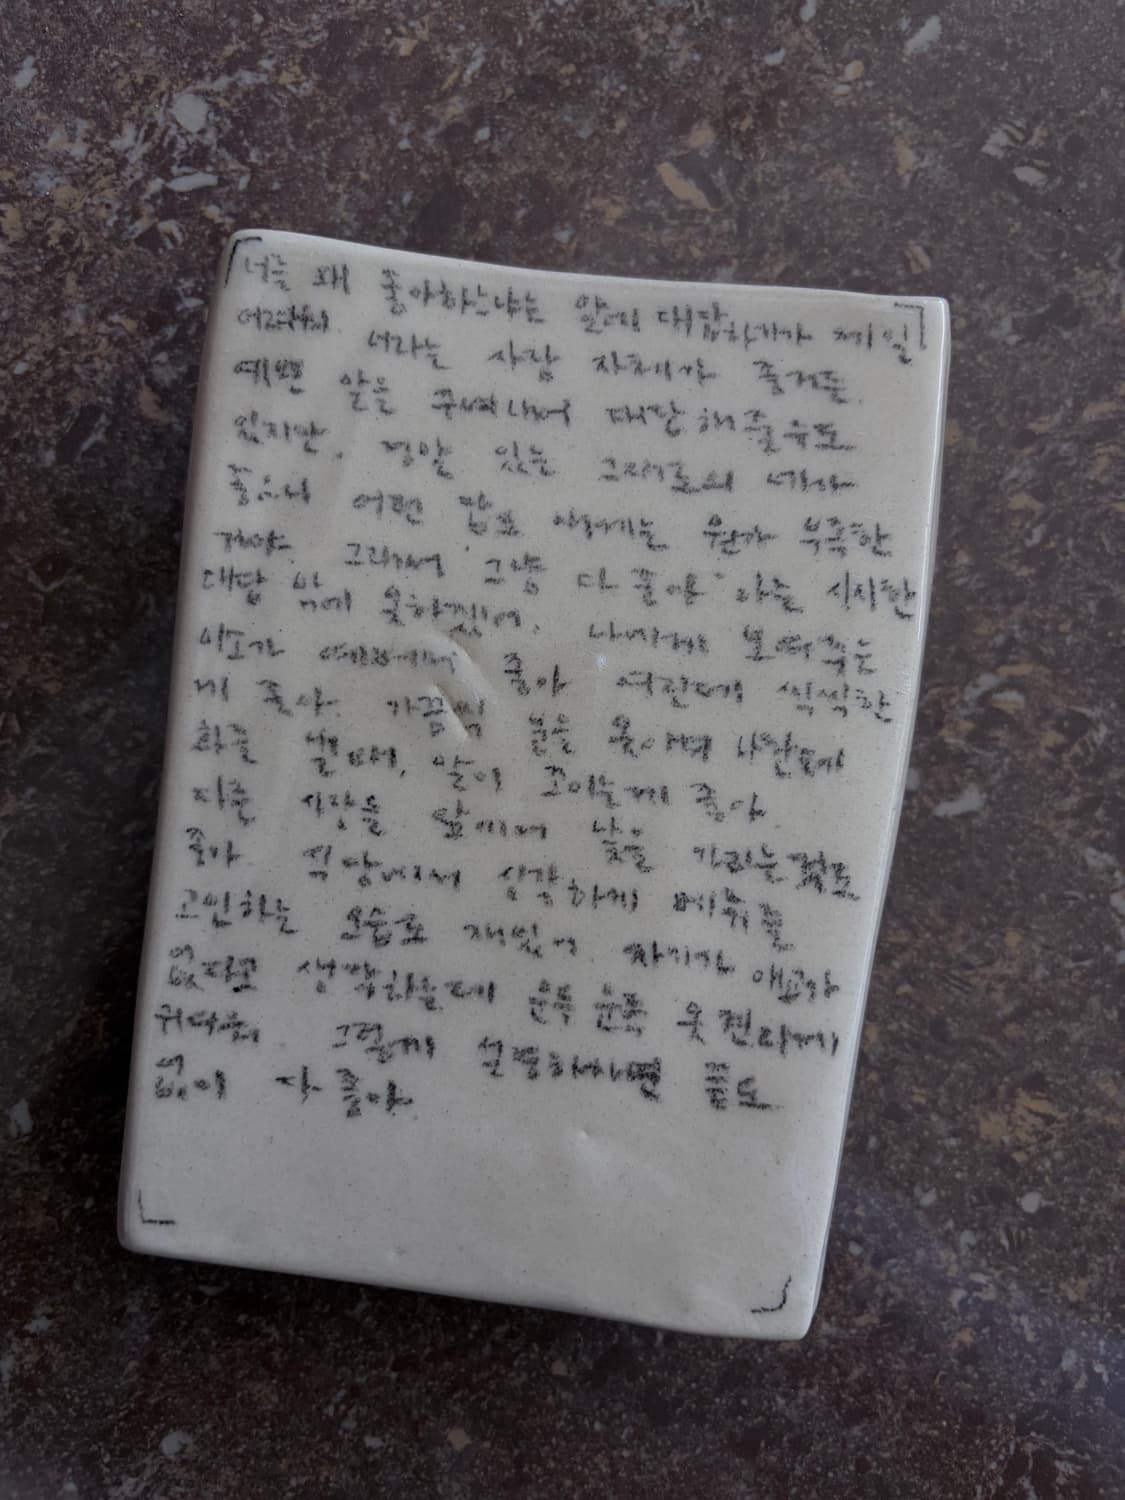 너를 왜 좋아하느냐는 말에 대답하기가 제일
어려워. 너라는 사람 자체가 좋거든
예쁜 말을 꾸며내어 대답해줄수도
있지만, 정말 있는 그대로의 네가
좋으니 어떤 답도 나에게는 뭔가 부족한
거야. 그래서 "그냥 다 좋아" 라는 시시한
대답 밖에 못하겠어. 나에게 보여주는
미소가 예뻐서 좋아 여린데 씩씩한
게 좋아. 가끔씩 분을 못이겨 나한테
화를 낼때, 말이 꼬이는게 좋아.
다른 사람들 앞에서 낯을 가리는것도
좋아 식당에서 심각하게 메뉴를
고민하는 모습도 재밌어 자기가 애교가
없다고 생각하는데 문득 문득 못견디게
귀여워. 그렇게 설명하자면 끝도
없이 다 좋아.